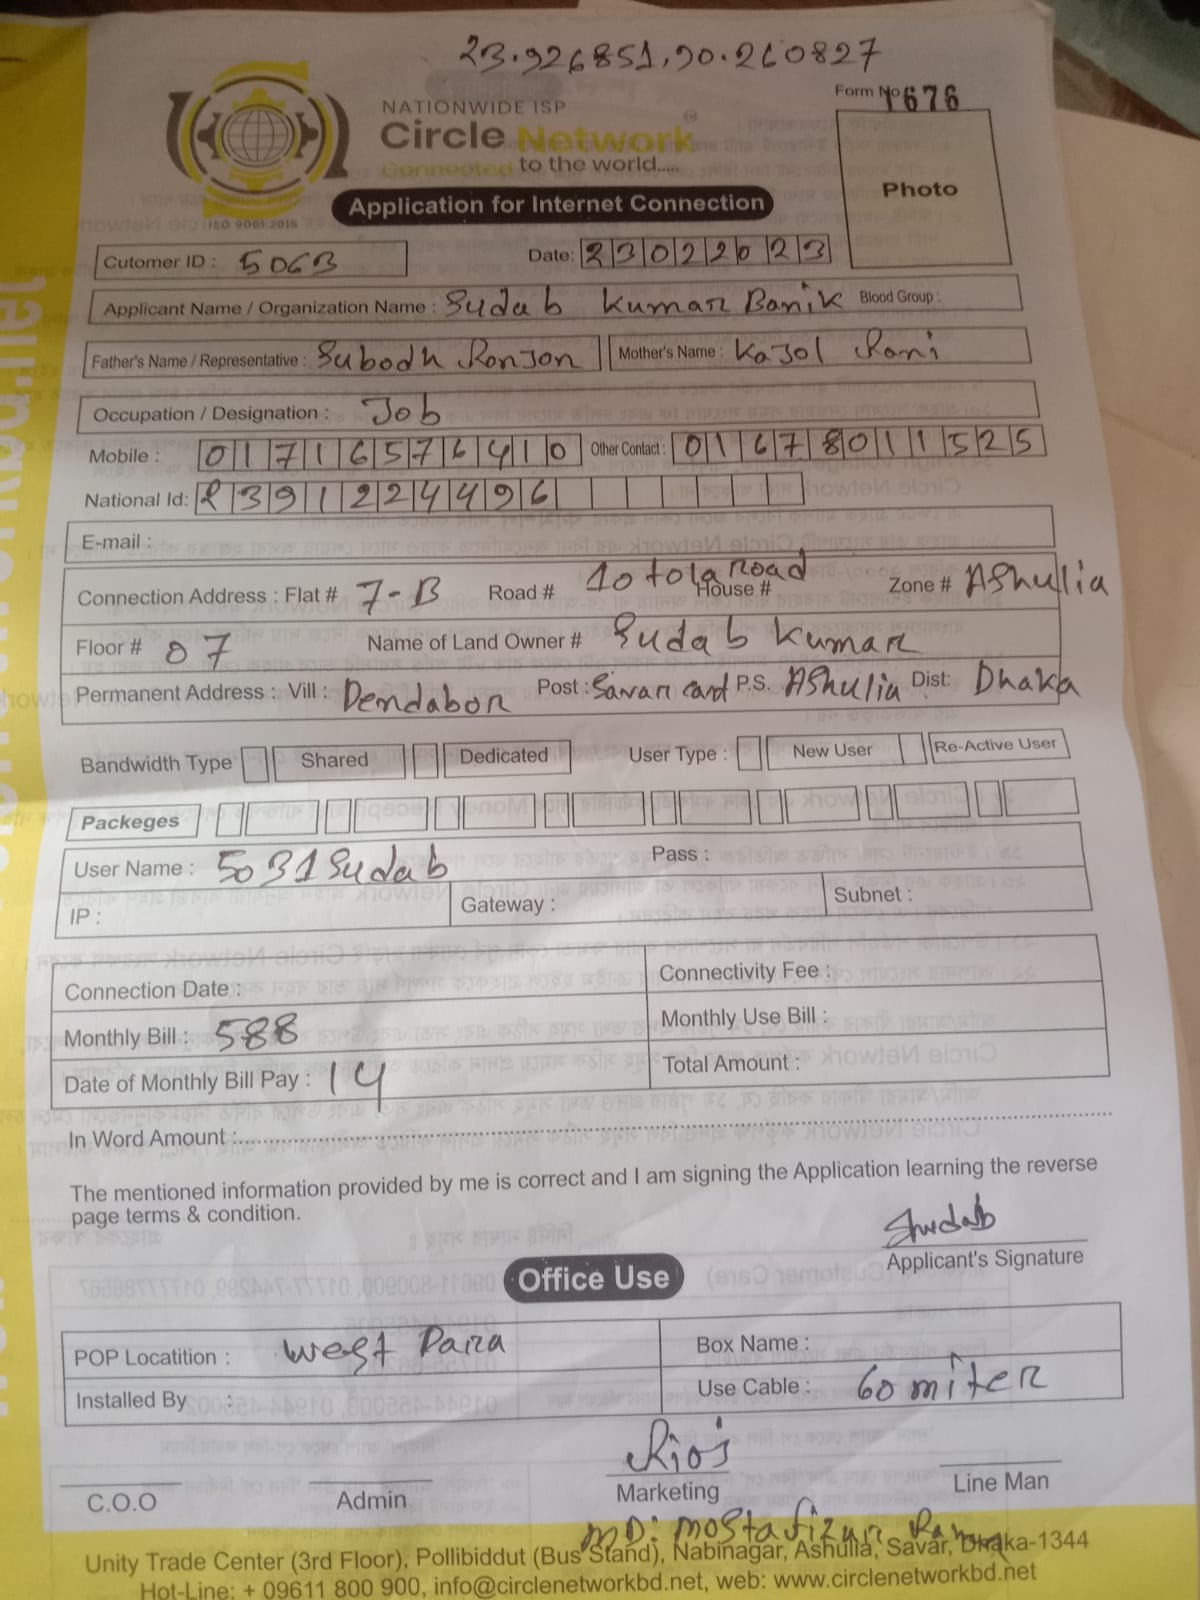 23.926851,90.260827
Form No 1676
NATIONWIDE ISP
Circle Network
Connected to the world.....
ISO 9001:2015
Photo
Application for Internet Connection
Cutomer ID : 5063
Date: 23022023
Applicant Name / Organization Name : Sudab Kumar Banik Blood Group :
Father's Name / Representative : Subodh Ronjon Mother's Name : Kajol Rani
Occupation / Designation : Job
Mobile : 01716576410 Other Contact : 01678011525
National Id: 2391224496
E-mail :
Connection Address : Flat # 7-B Road # 10 tola Road House # Zone # AShulia
Floor # 07 Name of Land Owner # Sudab Kumar
Permanent Address : Vill : Dendabor Post : Savar cant P.S. AShulia Dist: Dhaka
Bandwidth Type Shared Dedicated User Type : New User Re-Active User
Packeges
User Name : 5031Sudab Pass :
IP : Gateway : Subnet :
Connection Date : Connectivity Fee :
Monthly Bill : 588 Monthly Use Bill :
Date of Monthly Bill Pay : 14 Total Amount :
In Word Amount :
The mentioned information provided by me is correct and I am signing the Application learning the reverse
page terms & condition.
Shudab
Applicant's Signature
Office Use
POP Locatition : West Para Box Name :
Installed By : Use Cable : 60 miter
C.O.O Admin Marketing Line Man
MD: Mostafizur
Unity Trade Center (3rd Floor), Pollibiddut (Bus Stand), Nabinagar, Ashulia, Savar, Dhaka-1344
Hot-Line: + 09611 800 900, info@circlenetworkbd.net, web: www.circlenetworkbd.net